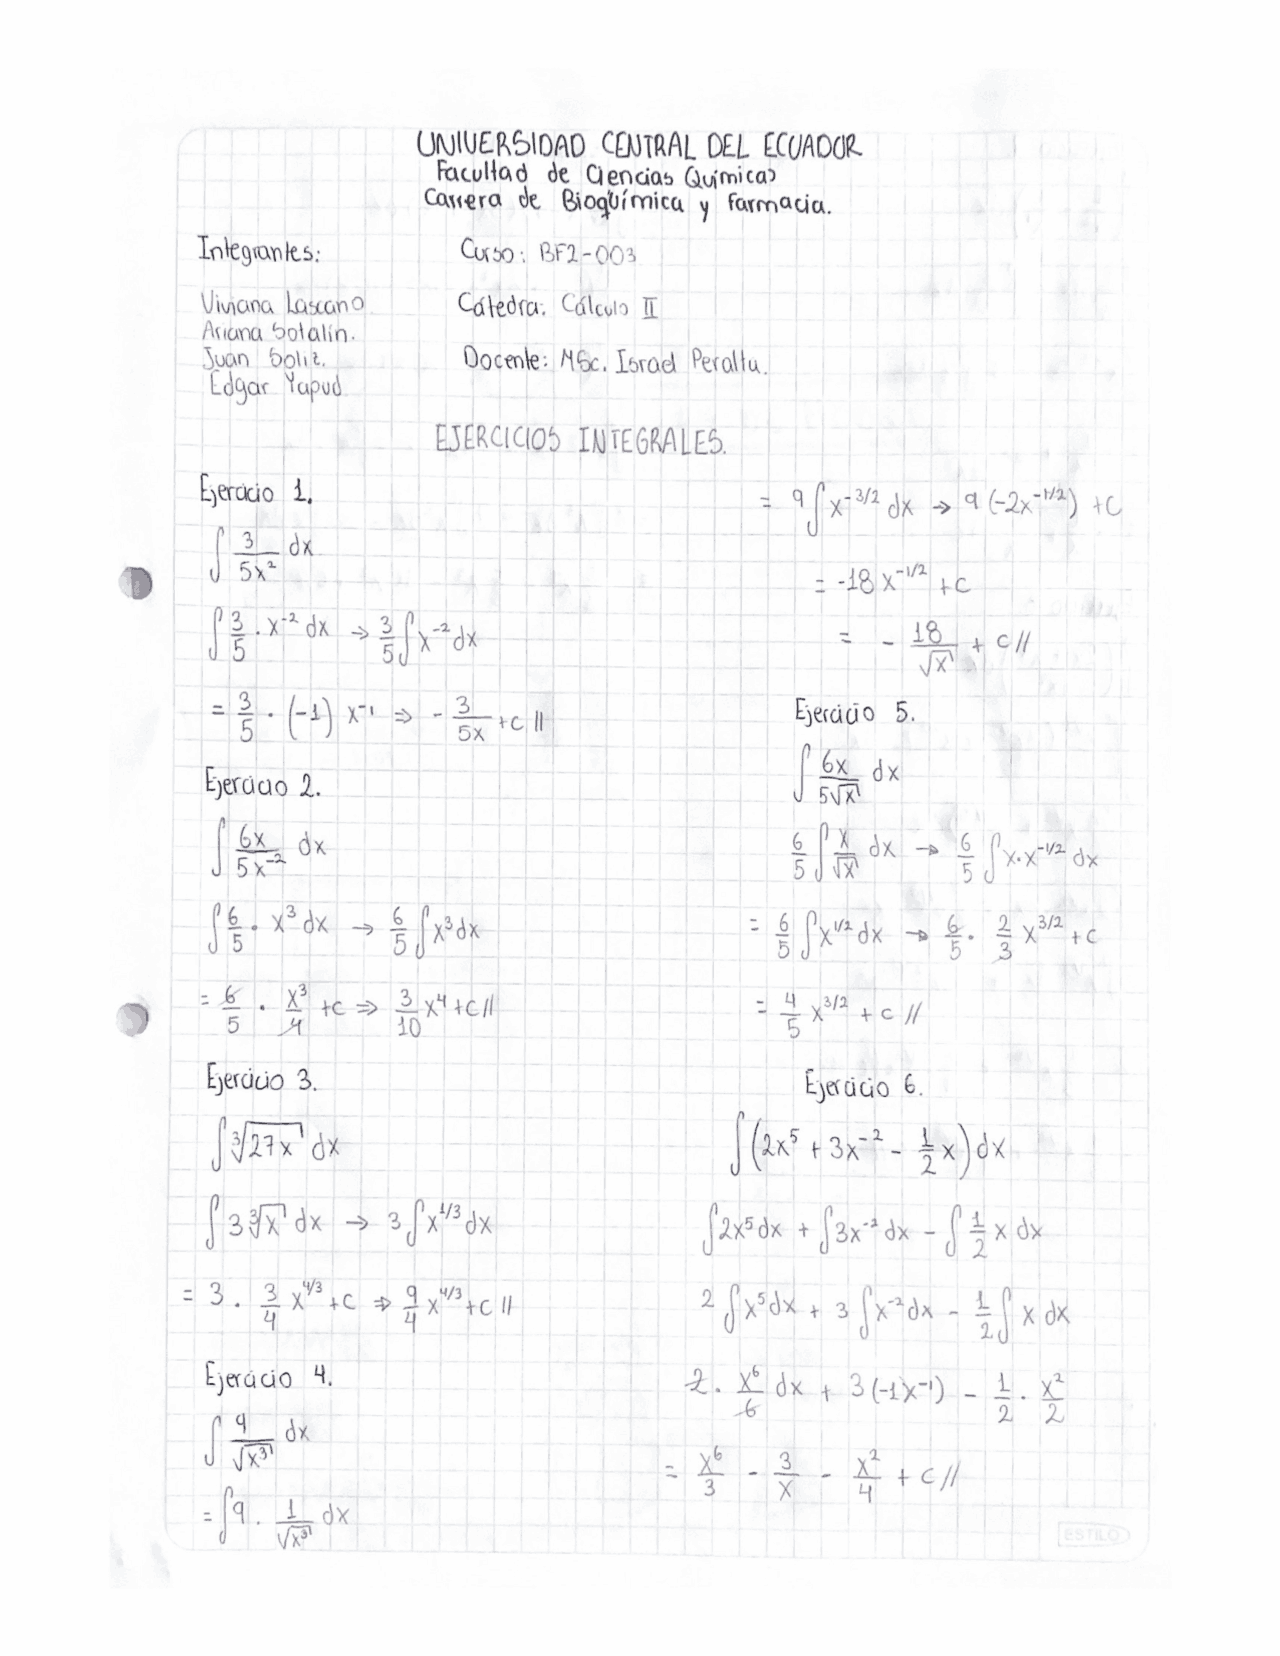 UNIVERSIDAD CENTRAL DEL ECUADOR
Facultad de Ciencias Químicas
Carrera de Bioquímica y Farmacia.
Integrantes:
Viviana Lascano
Ariana Sotalín.
Juan Soliz.
Edgar Yapud.
Curso: BF2-003
Cátedra: Cálculo II
Docente: MSc. Israel Peralta.
EJERCICIOS INTEGRALES.
Ejercicio 1.
∫ 3/(5x²) dx
∫ 3/5 · x⁻² dx → 3/5 ∫ x⁻² dx
= 3/5 · (-1) x⁻¹ ⇒ - 3/(5x) + c //
Ejercicio 2.
∫ 6x/(5x⁻²) dx
∫ 6/5 · x³ dx → 6/5 ∫ x³ dx
= 6/5 · x³/4 + c ⇒ 3/10 x⁴ + c //
Ejercicio 3.
∫ ∛(27x) dx
∫ 3 ∛x dx → 3 ∫ x^(1/3) dx
= 3 · 3/4 x^(4/3) + c ⇒ 9/4 x^(4/3) + c //
Ejercicio 4.
∫ 9/√(x³) dx
= ∫ 9 · 1/√(x³) dx
= 9 ∫ x^(-3/2) dx → 9 (-2x^(-1/2)) + c
= -18 x^(-1/2) + c
= - 18/√x + c //
Ejercicio 5.
∫ 6x/(5√x) dx
6/5 ∫ x/√x dx → 6/5 ∫ x·x^(-1/2) dx
= 6/5 ∫ x^(1/2) dx → 6/5 · 2/3 x^(3/2) + c
= 4/5 x^(3/2) + c //
Ejercicio 6.
∫ (2x⁵ + 3x⁻² - 1/2 x) dx
∫ 2x⁵ dx + ∫ 3x⁻² dx - ∫ 1/2 x dx
2 ∫ x⁵ dx + 3 ∫ x⁻² dx - 1/2 ∫ x dx
2 · x⁶/6 dx + 3 (-1x⁻¹) - 1/2 · x²/2
= x⁶/3 - 3/x - x²/4 + c //
ESTILO